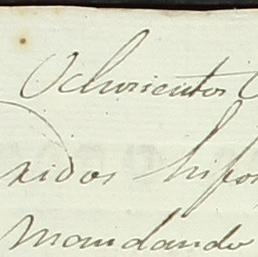 Ochosientos
xidos hipo
Mandando